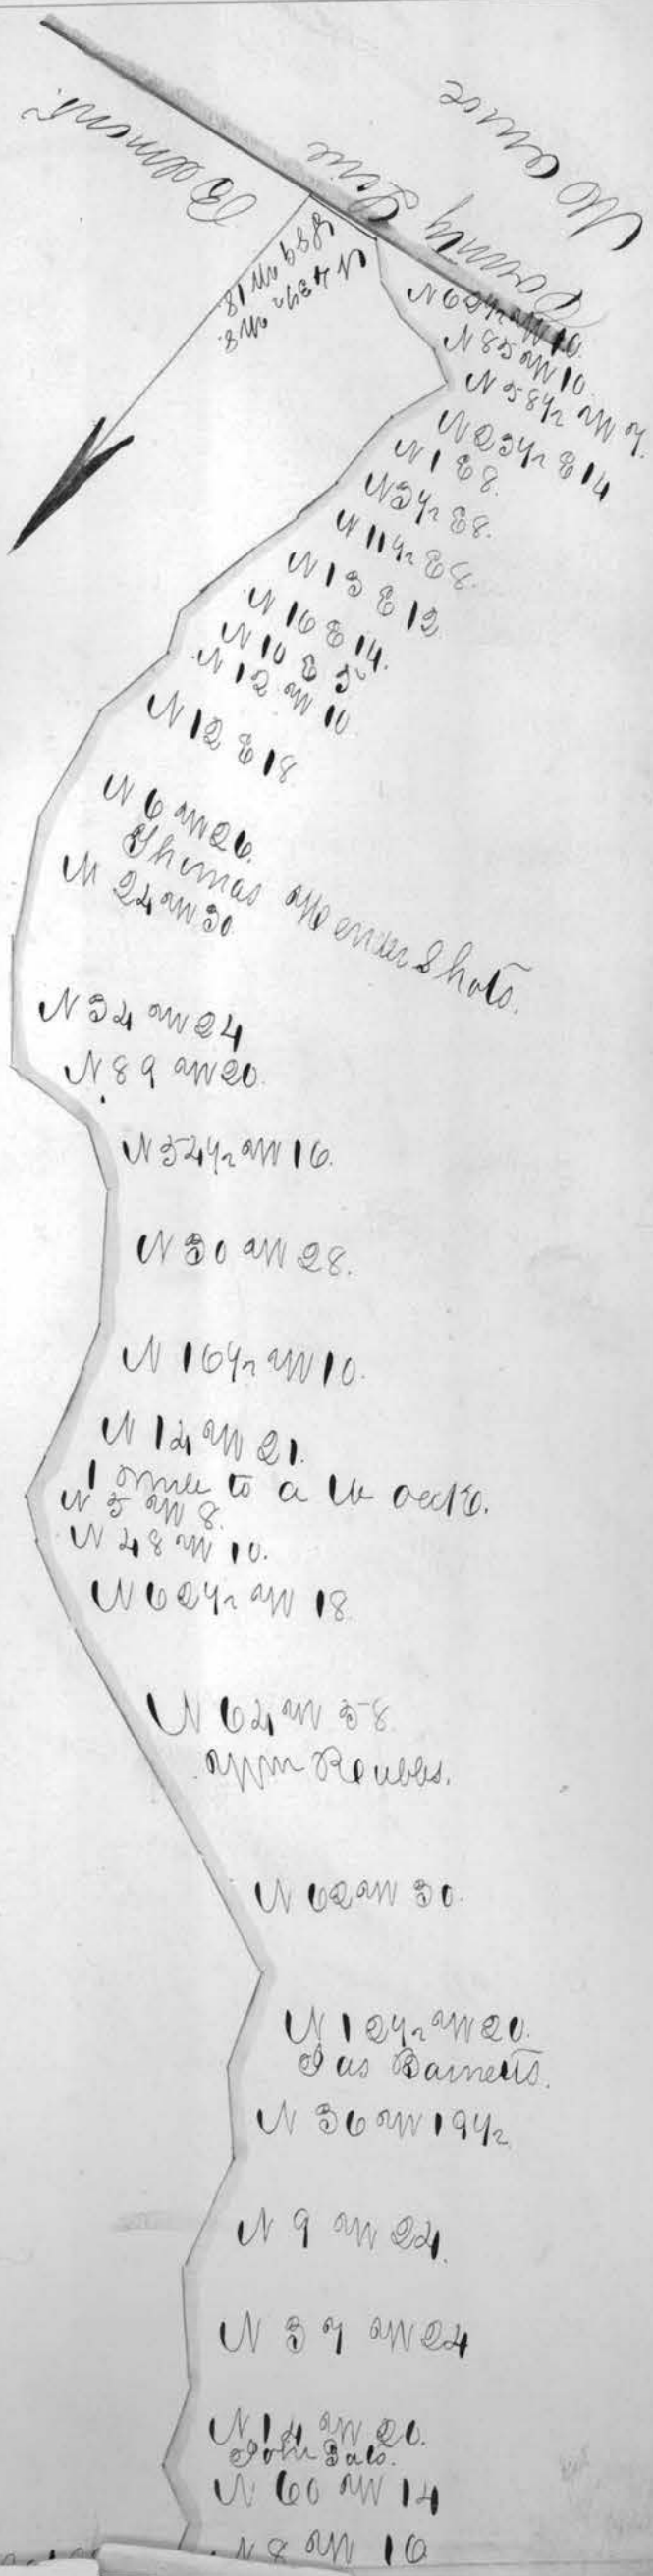 Monroe
County Line
Belmont.
S 89 W 18
N 73½ W 8.
N 62½ W 10.
N 85 W 10.
N 58½ W 7.
N 23½ E 14
N 1 E 8.
N 3½ E 8.
N 11½ E 8.
N 13 E 12
N 16 E 14.
N 10 E 5
N 12 W 10
N 12 E 18
N 6 W 26.
Thomas Hendershots.
N 24 W 30
N 34 W 24
N 89 W 20.
N 54½ W 16.
N 30 W 28.
N 16½ W 10.
N 14 W 21.
1 mile to a W oak.
N 5 W 8.
N 48 W 10.
N 62½ W 18
N 64 W 58.
Wm Roubbs.
N 62 W 30.
N 12½ W 20.
Jas Barnetts.
N 36 W 19½
N 9 W 24.
N 37 W 24
N 14 W 20.
John
N 60 W 14
N 8 W 16